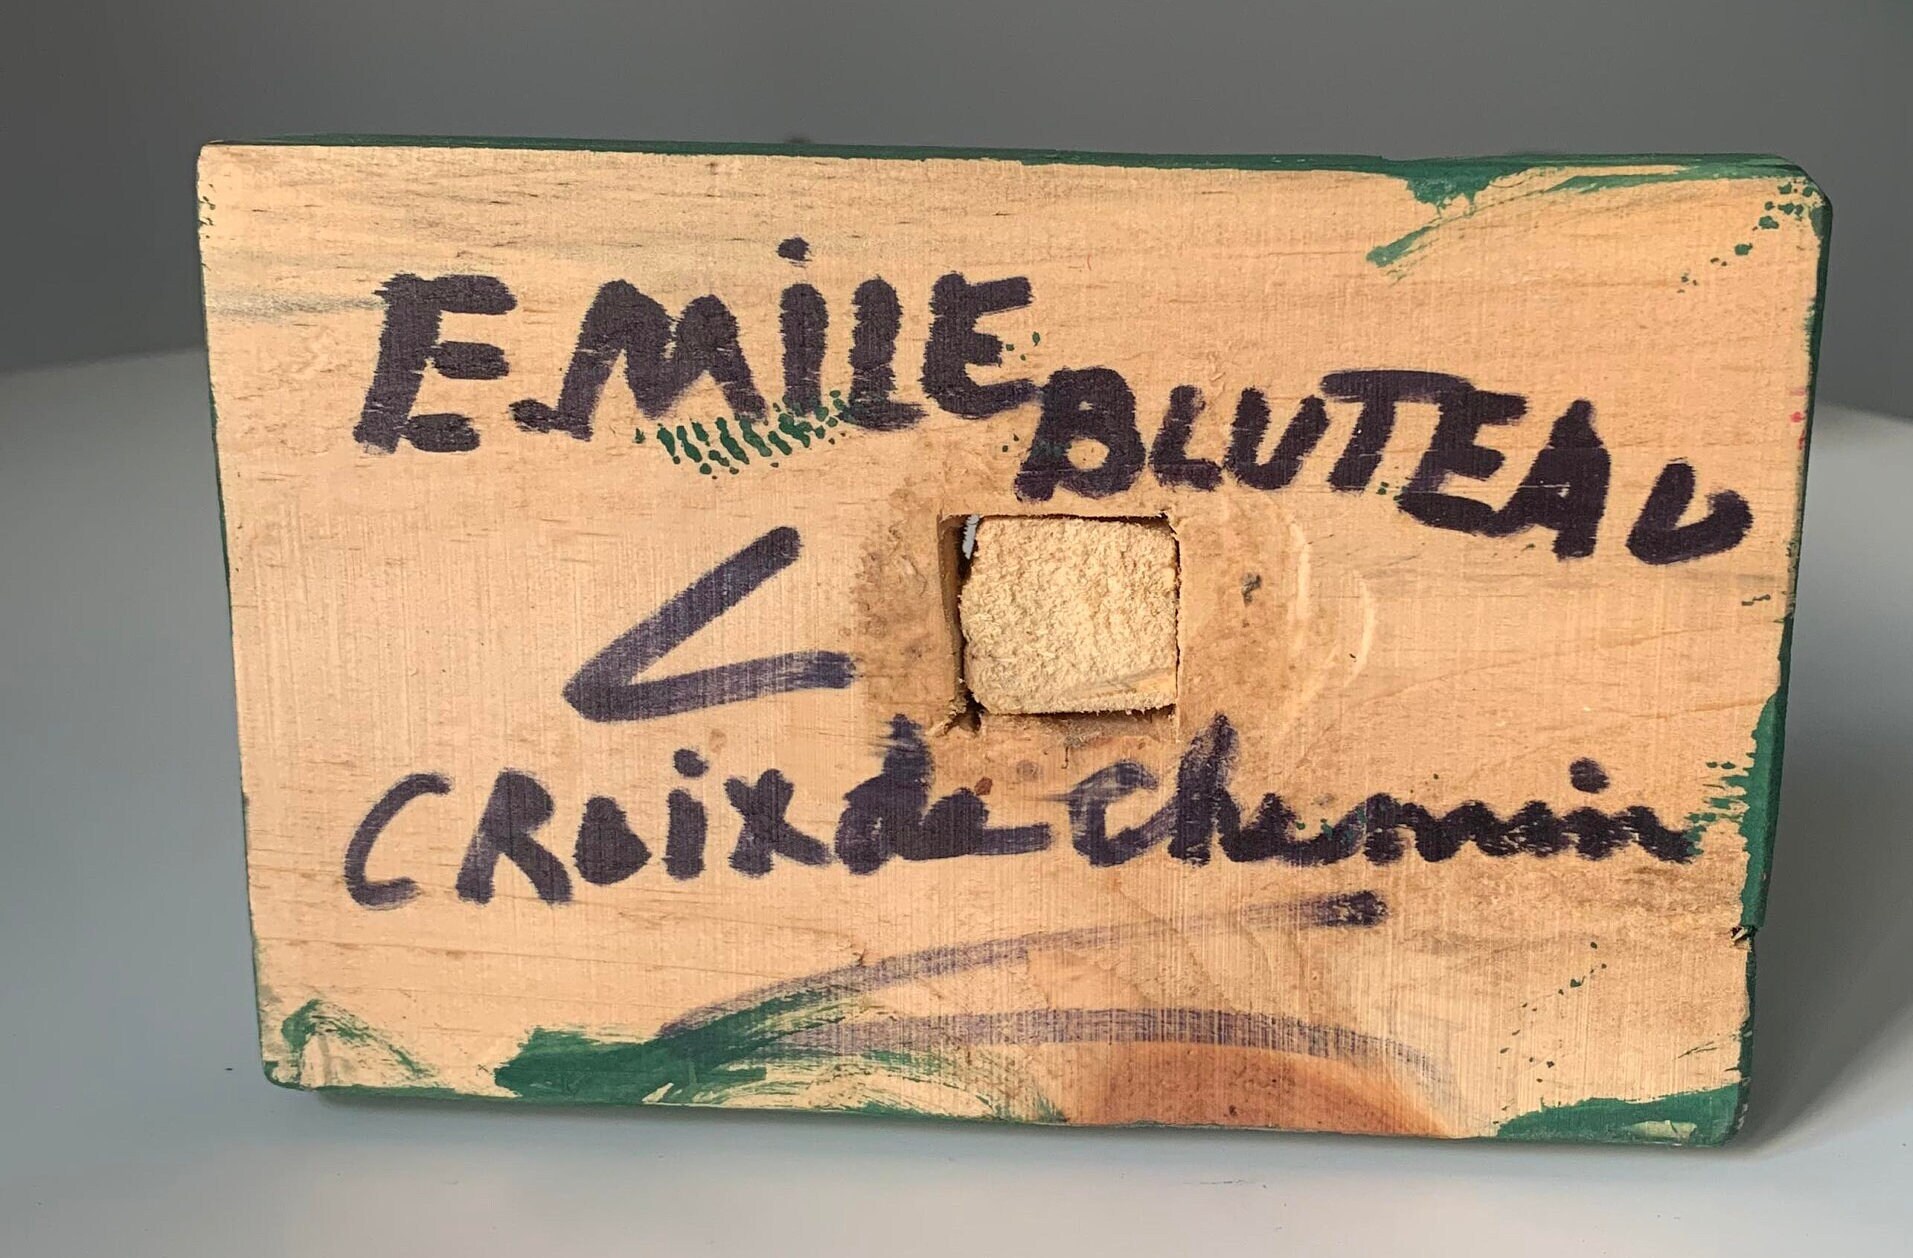 EMiLE BLUTEAU
CROix de Chemin